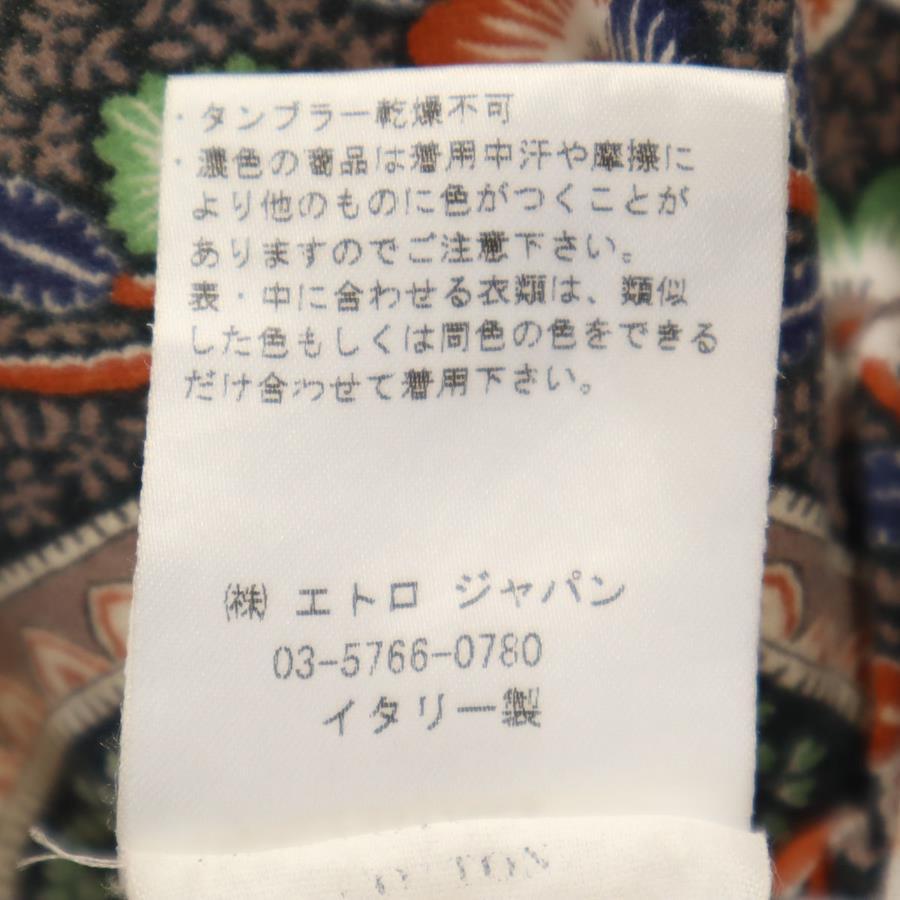 ・タンブラー乾燥不可
・濃色の商品は着用中汗や摩擦に
より他のものに色がつくことが
ありますのでご注意下さい。
表・中に合わせる衣類は、類似
した色もしくは同色の色をできる
だけ合わせて着用下さい。
㈱ エトロ ジャパン
03-5766-0780
イタリー製